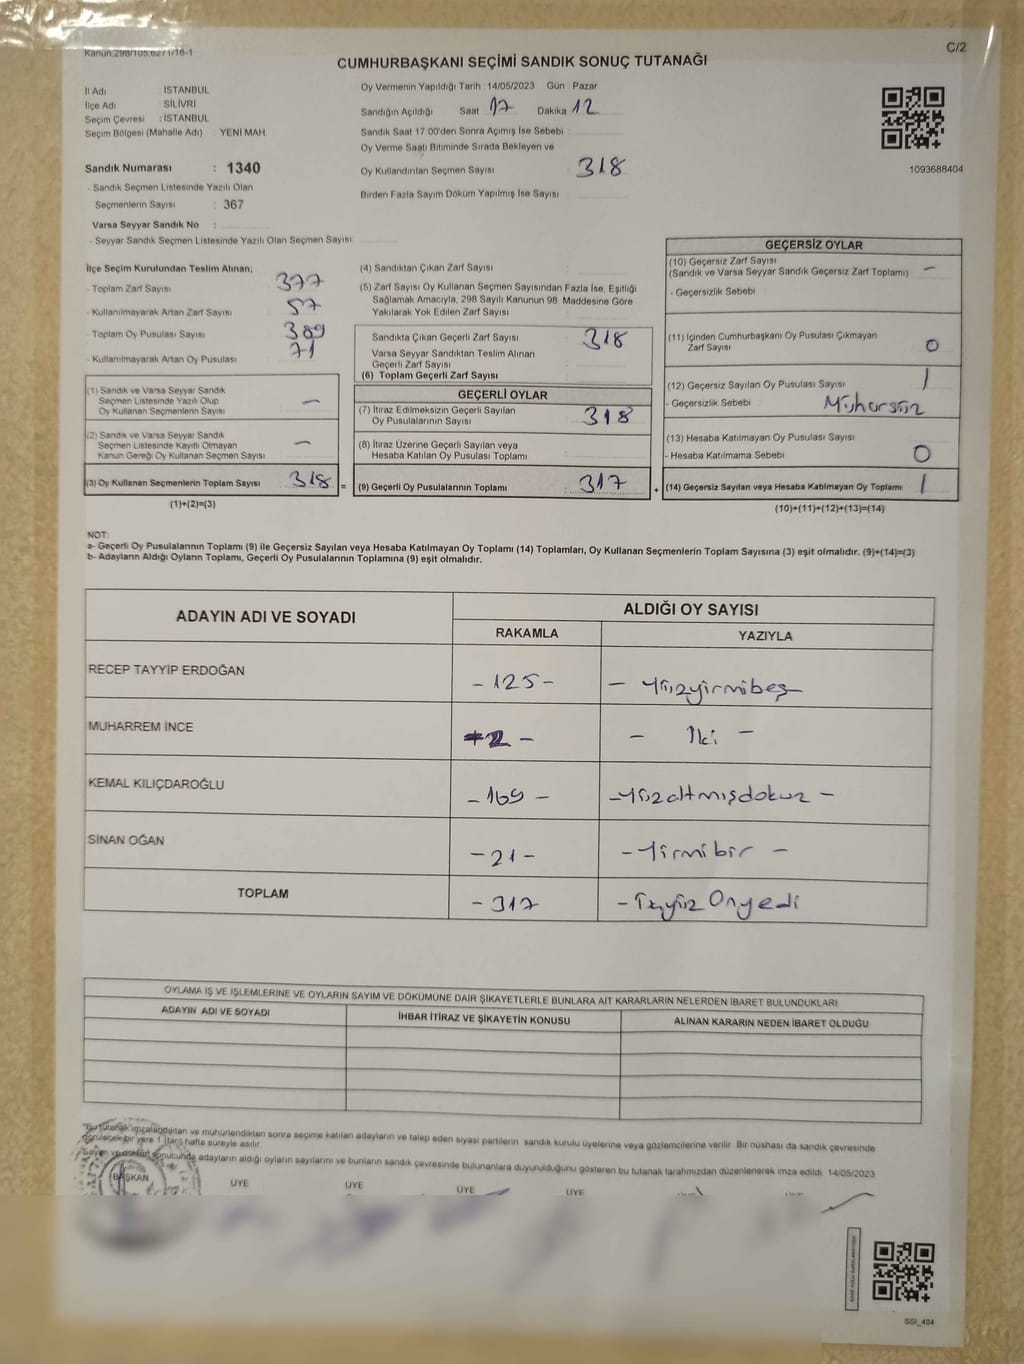 Kanun 298/105,6271/18-1
C/2
CUMHURBAŞKANI SEÇİMİ SANDIK SONUÇ TUTANAĞI
İl Adı : İSTANBUL
İlçe Adı : SİLİVRİ
Seçim Çevresi : İSTANBUL
Seçim Bölgesi (Mahalle Adı) : YENİ MAH.
Oy Vermenin Yapıldığı Tarih : 14/05/2023 Gün : Pazar
Sandığın Açıldığı Saat 17 Dakika 12
Sandık Saat 17 00'den Sonra Açımış İse Sebebi
Oy Verme Saati Bitiminde Sırada Bekleyen ve
Oy Kullandırılan Seçmen Sayısı 318
Birden Fazla Sayım Döküm Yapılmış İse Sayısı
1093688404
Sandık Numarası : 1340
- Sandık Seçmen Listesinde Yazılı Olan
Seçmenlerin Sayısı : 367
Varsa Seyyar Sandık No :
- Seyyar Sandık Seçmen Listesinde Yazılı Olan Seçmen Sayısı
İlçe Seçim Kurulundan Teslim Alınan;
- Toplam Zarf Sayısı 377
- Kullanılmayarak Artan Zarf Sayısı 57
- Toplam Oy Pusulası Sayısı 389
- Kullanılmayarak Artan Oy Pusulası 71
(1) Sandık ve Varsa Seyyar Sandık
Seçmen Listesinde Yazılı Olup
Oy Kullanan Seçmenlerin Sayısı –
(2) Sandık ve Varsa Seyyar Sandık
Seçmen Listesinde Kayıtlı Olmayan
Kanun Gereği Oy Kullanan Seçmen Sayısı –
(3) Oy Kullanan Seçmenlerin Toplam Sayısı 318 =
(1)+(2)=(3)
(4) Sandıktan Çıkan Zarf Sayısı
(5) Zarf Sayısı Oy Kullanan Seçmen Sayısından Fazla İse, Eşitliği
Sağlamak Amacıyla, 298 Sayılı Kanunun 98. Maddesine Göre
Yakılarak Yok Edilen Zarf Sayısı
Sandıkta Çıkan Geçerli Zarf Sayısı 318
Varsa Seyyar Sandıktan Teslim Alınan
Geçerli Zarf Sayısı
(6) Toplam Geçerli Zarf Sayısı
GEÇERLİ OYLAR
(7) İtiraz Edilmeksizin Geçerli Sayılan
Oy Pusulalarının Sayısı 318
(8) İtiraz Üzerine Geçerli Sayılan veya
Hesaba Katılan Oy Pusulası Toplamı
(9) Geçerli Oy Pusulalarının Toplamı : 317 +
GEÇERSİZ OYLAR
(10) Geçersiz Zarf Sayısı
(Sandık ve Varsa Seyyar Sandık Geçersiz Zarf Toplamı) –
- Geçersizlik Sebebi
(11) İçinden Cumhurbaşkanı Oy Pusulası Çıkmayan
Zarf Sayısı 0
(12) Geçersiz Sayılan Oy Pusulası Sayısı 1
- Geçersizlik Sebebi Mühürsüz
(13) Hesaba Katılmayan Oy Pusulası Sayısı
- Hesaba Katılmama Sebebi 0
(14) Geçersiz Sayılan veya Hesaba Katılmayan Oy Toplamı 1
(10)+(11)+(12)+(13)=(14)
NOT:
a- Geçerli Oy Pusulalarının Toplamı (9) ile Geçersiz Sayılan veya Hesaba Katılmayan Oy Toplamı (14) Toplamları, Oy Kullanan Seçmenlerin Toplam Sayısına (3) eşit olmalıdır. (9)+(14)=(3)
b- Adayların Aldığı Oyların Toplamı, Geçerli Oy Pusulalarının Toplamına (9) eşit olmalıdır.
ADAYIN ADI VE SOYADI
ALDIĞI OY SAYISI
RAKAMLA YAZIYLA
RECEP TAYYİP ERDOĞAN - 125 - - Yüzyirmibeş
MUHARREM İNCE 2 - - İki -
KEMAL KILIÇDAROĞLU - 169 - - Yüzaltmışdokuz -
SİNAN OĞAN - 21 - - Yirmibir -
TOPLAM - 317 - Üçyüz Onyedi
OYLAMA İŞ VE İŞLEMLERİNE VE OYLARIN SAYIM VE DÖKÜMÜNE DAİR ŞİKAYETLERLE BUNLARA AİT KARARLARIN NELERDEN İBARET BULUNDUKLARI
ADAYIN ADI VE SOYADI İHBAR İTİRAZ VE ŞİKAYETİN KONUSU ALINAN KARARIN NEDEN İBARET OLDUĞU
"Bu tutanak imzalandıktan ve mühürlendikten sonra seçime katılan adayların ve talep eden siyasi partilerin sandık kurulu üyelerine veya gözlemcilerine verilir. Bir nüshası da sandık çevresinde
görülecek bir yere 1 (bir) hafta süreyle asılır.
Sayım ve döküm sonucunda adayların aldığı oyların sayılarını ve bunların sandık çevresinde bulunanlara duyurulduğunu gösteren bu tutanak tarafımızdan düzenlenerek imza edildi. 14/05/2023
BAŞKAN ÜYE ÜYE ÜYE ÜYE ÜYE
SSI_404